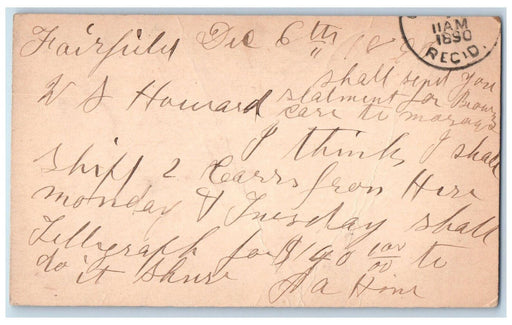 Fairfield Dec 6th 189
11 AM
1890
REC'D.
W S Howard
shall send you
statment for
care to morow
I think I shall
ship 2 Carrs from Here
monday & Tuesday shall
Tellegraph for $140 100/00 to
do it shure